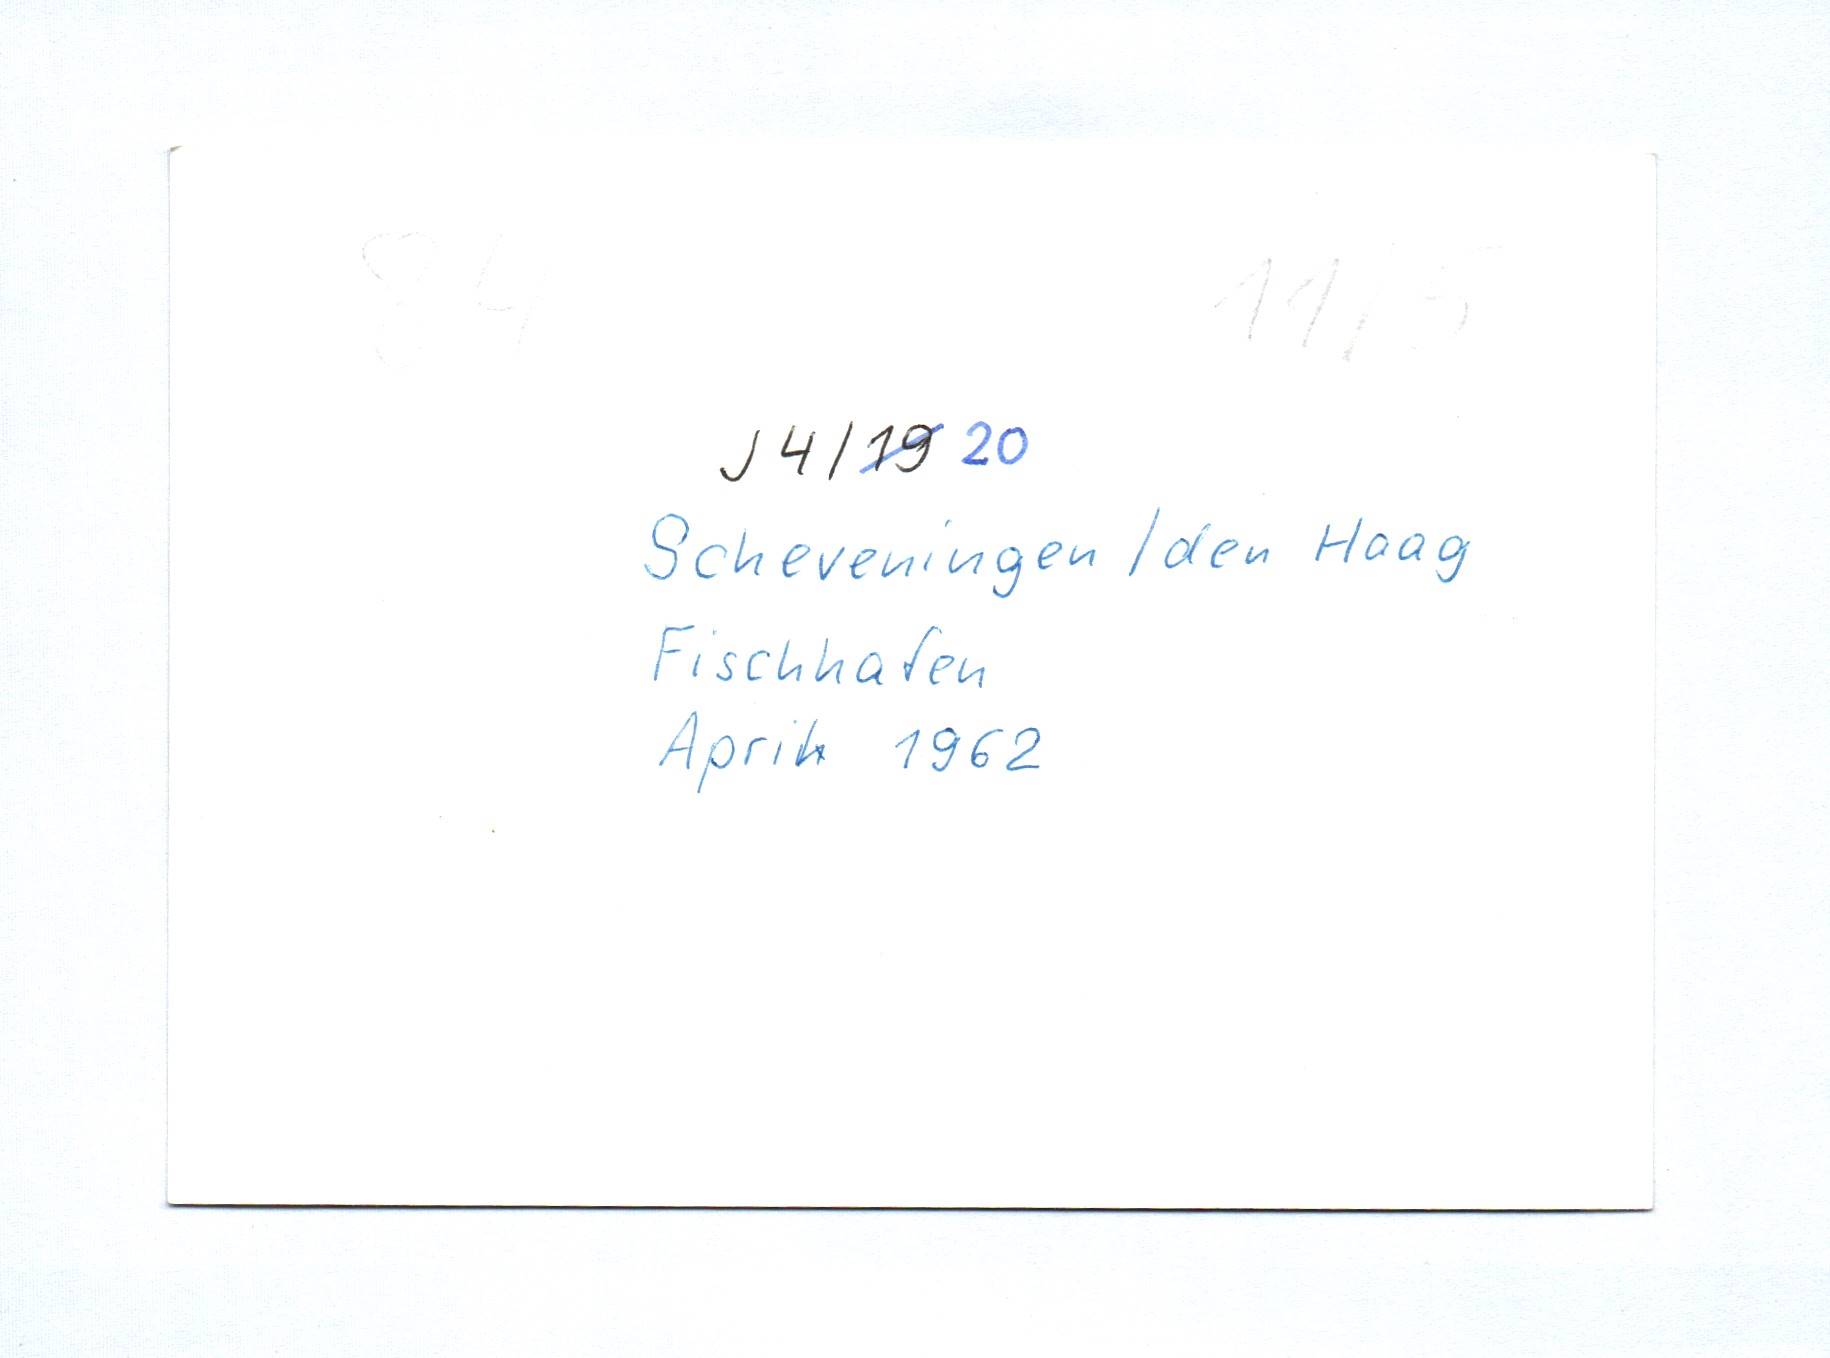 84 11/5
J 4/19 20
Scheveningen / den Haag
Fischhafen
April 1962